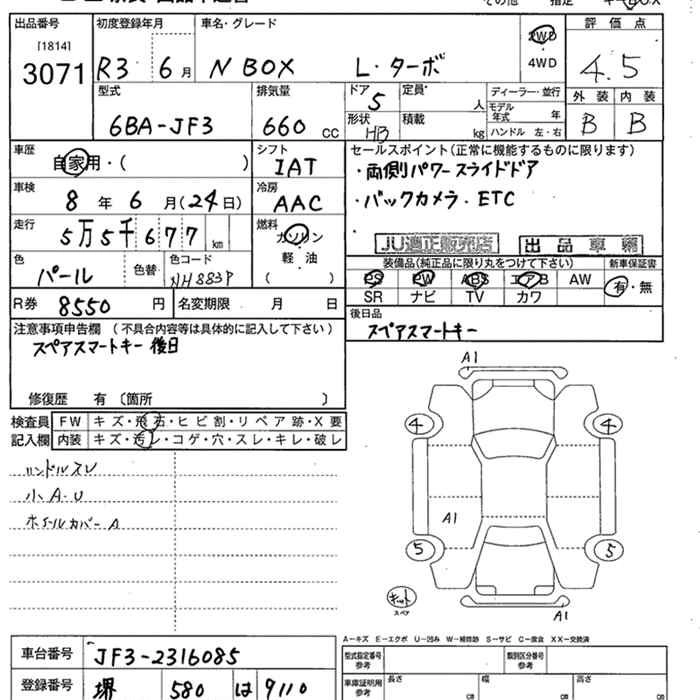 出品番号 初度登録年月 車名・グレード 評価点
[1814]
3071 R3 6月 N BOX L・ターボ 2WD 4WD 4.5
型式 排気量 ドア 5 定員 人 ディーラー・並行 外装 内装
6BA-JF3 660cc 形状 HB 積載 kg モデル年式 年 ハンドル 左・右 B B
車歴 自家用・( ) シフト IAT セールスポイント(正常に機能するものに限ります)
・両側パワースライドドア
車検 8年6月(24日) 冷房 AAC ・バックカメラ・ETC
走行 5万5千677km 燃料 ガソリン 軽油 ( )
JU適正販売店 出品車輌
色 パール 色替 色コード NH883P
装備品(純正品に限り丸をつけて下さい) 新車保証書
PS PW ABS エアB AW 有・無
SR ナビ TV カワ
R券 8550円 名変期限 月 日
後日品
スペアスマートキー
注意事項申告欄(不具合内容等は具体的に記入して下さい)
スペアスマートキー 後日
修復歴 有〔箇所 〕
検査員記入欄 FW キズ・飛石・ヒビ割・リペア跡・X要
内装 キズ・汚レ・コゲ・穴・スレ・キレ・破レ
ハンドルスレ
小A・U
ホイールカバーA
A1
4 4
A1
5 5
キット
スペア
A1
A-キズ E-エクボ U-凹み W-補修跡 S-サビ C-腐食 XX-交換済
車台番号 JF3-2316085 型式指定番号 参考 類別区分番号 参考
登録番号 堺 580 は 9110 車庫証明用 参考 長さ cm 幅 cm 高さ cm